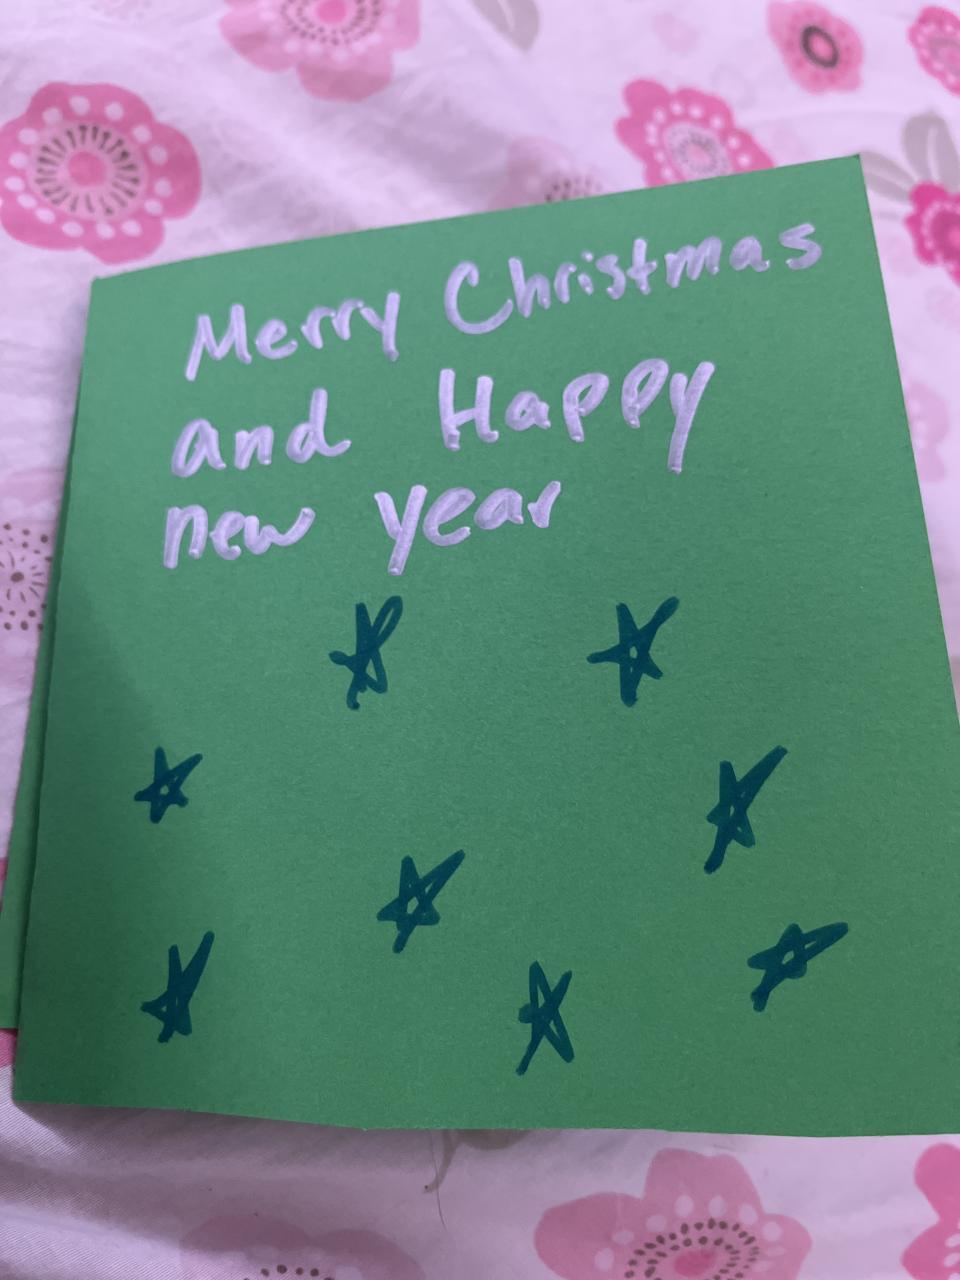 Merry Christmas
and Happy
new year